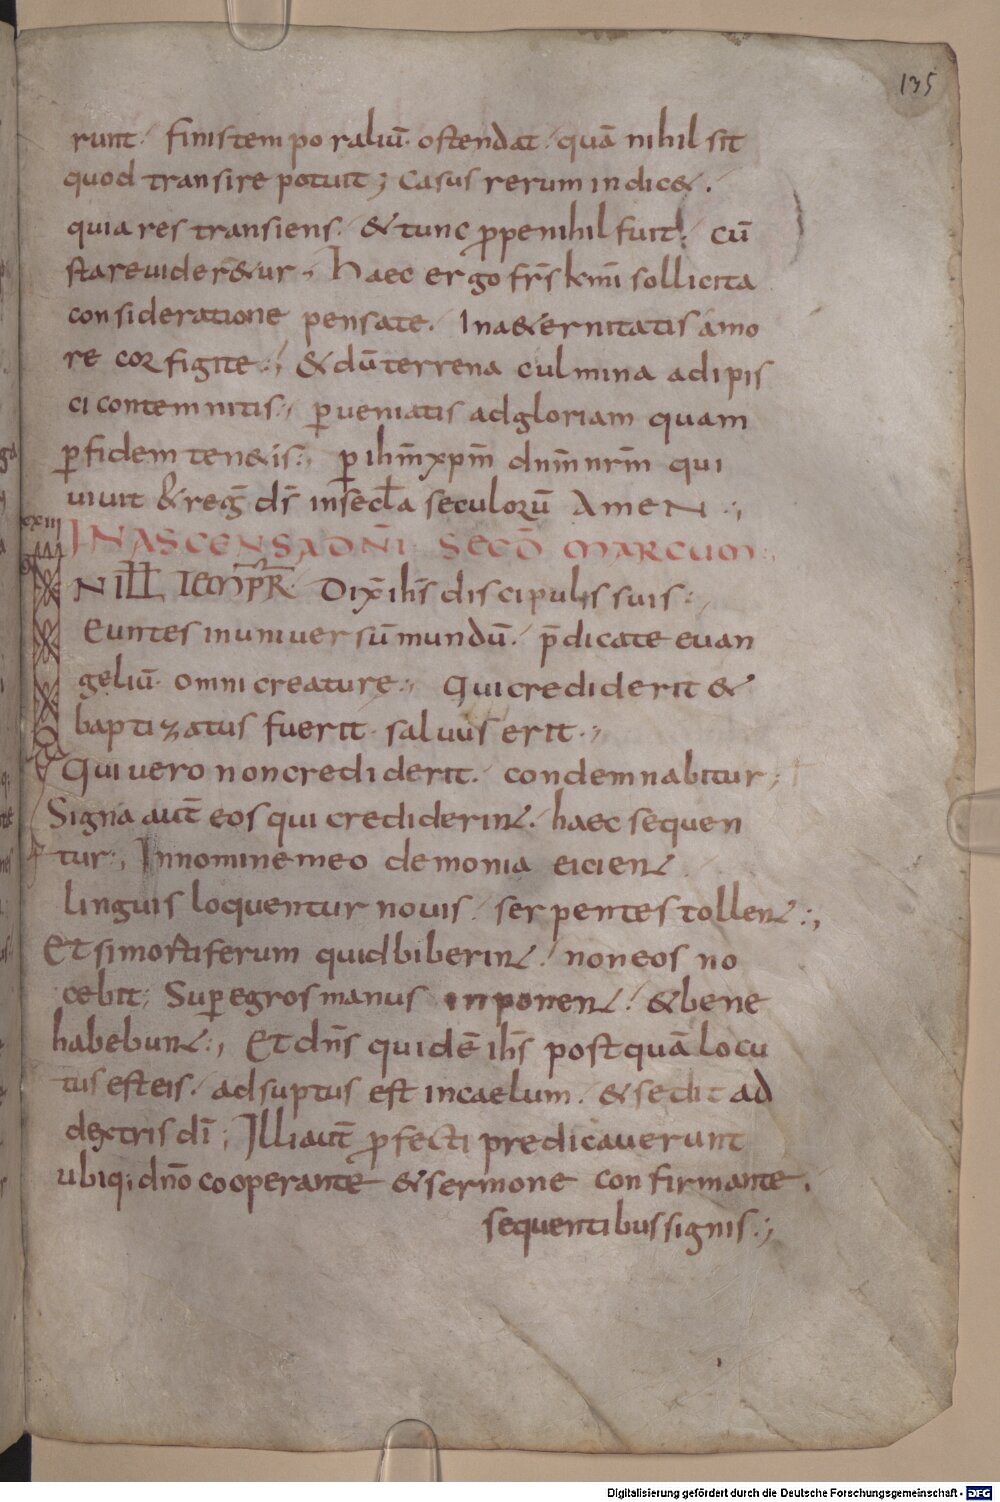 135
runt / finis temporaliū· ostendat / quā nihil sit
quod transire potuit ; casus rerum indic& .
quia res transiens / & tunc ꝓpe nihil fuit / cū
stare uider&ur ·, haec ergo fr̄s km̄i sollicita
consideratione pensate . In a&ernitatis amo
re cor figite :, & dū terrena culmina adipis
ci contemnitis :, ꝑueniatis ad gloriam quam
ꝑ fidem ten&is :, ꝑ ihm̄ xp̄m dnm̄ nrm̄ qui
uiuit & reg̅ ds̄ in secl̄a seculorū Amen :,
CXIII
IN ASCENSA DN̄I SECD̄ MARCUM :
IN ILL TEMPR̄ Dix̄ ih̄s discipulis suis :,
Euntes in uniuersū mundū / p̄dicate euan
geliū· omni creature :, Qui crediderit &
baptizatus fuerit · saluus erit ·,
Qui uero non crediderit / condemnabitur ;
Signa aut̄ eos qui crediderint / haec sequen
tur :, In nomine meo demonia eicient
linguis loquentur nouis / serpentes tollent :,
Et si mortiferum quid biberint / non eos no
cebit ; Super egros manus inponent / & bene
habebunt :, Et dn̄s quidē ih̄s postquā locu
tus est eis / adsuptus est in caelum / & sedit ad
dextris dī ; Illi aut̄ ꝓfecti predicauerunt
ubiq; dn̄o cooperante & sermone confirmante .
sequentibus signis :,
Digitalisierung gefördert durch die Deutsche Forschungsgemeinschaft - DFG